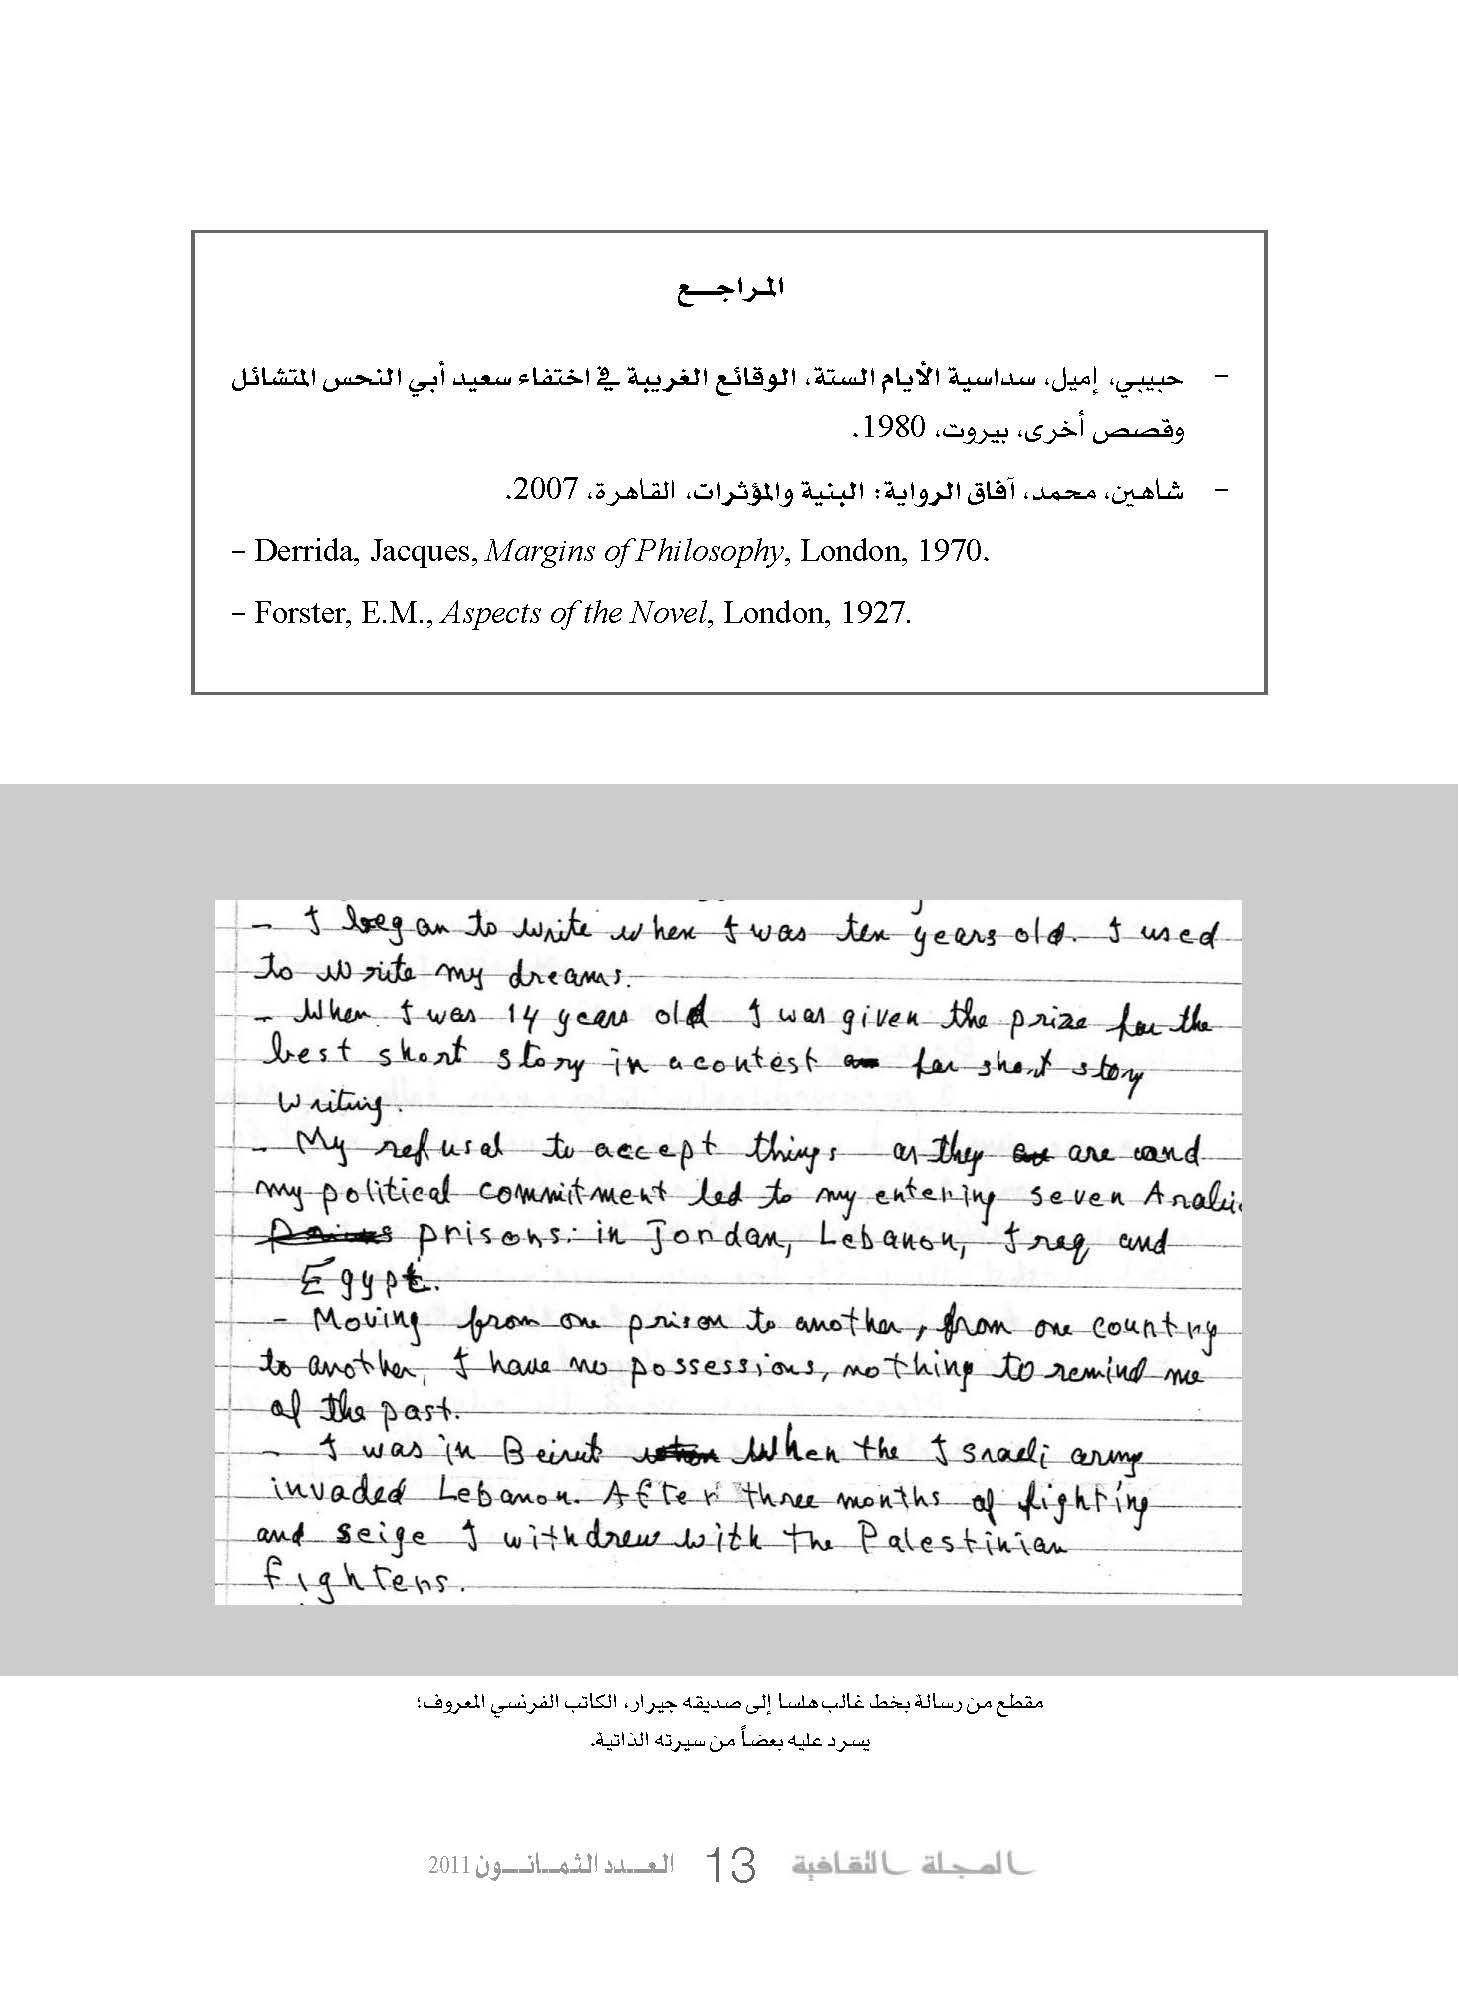 المراجـــع
– حبيبي، إميل، سداسية الأيام الستة، الوقائع الغريبة في اختفاء سعيد أبي النحس المتشائل
وقصص أخرى، بيروت، 1980.
– شاهين، محمد، آفاق الرواية: البنية والمؤثرات، القاهرة، 2007.
– Derrida, Jacques, Margins of Philosophy, London, 1970.
– Forster, E.M., Aspects of the Novel, London, 1927.
- I began to write when I was ten years old. I used
to write my dreams.
- When I was 14 years old I was given the prize for the
best short story in a contest for short story
writing.
- My refusal to accept things as they are and
my political commitment led to my entering seven Arabic
prisons: in Jordan, Lebanon, Iraq and
Egypt.
- Moving from one prison to another, from one country
to another, I have no possessions, nothing to remind me
of the past.
- I was in Beirut When the Israeli army
invaded Lebanon. After three months of fighting
and seige I withdrew with the Palestinian
fighters.
مقطع من رسالة بخط غالب هلسا إلى صديقه جيرار، الكاتب الفرنسي المعروف؛
يسرد عليه بعضاً من سيرته الذاتية.
المجلة الثقافية 13 العـــدد الثمـــانـــون 2011